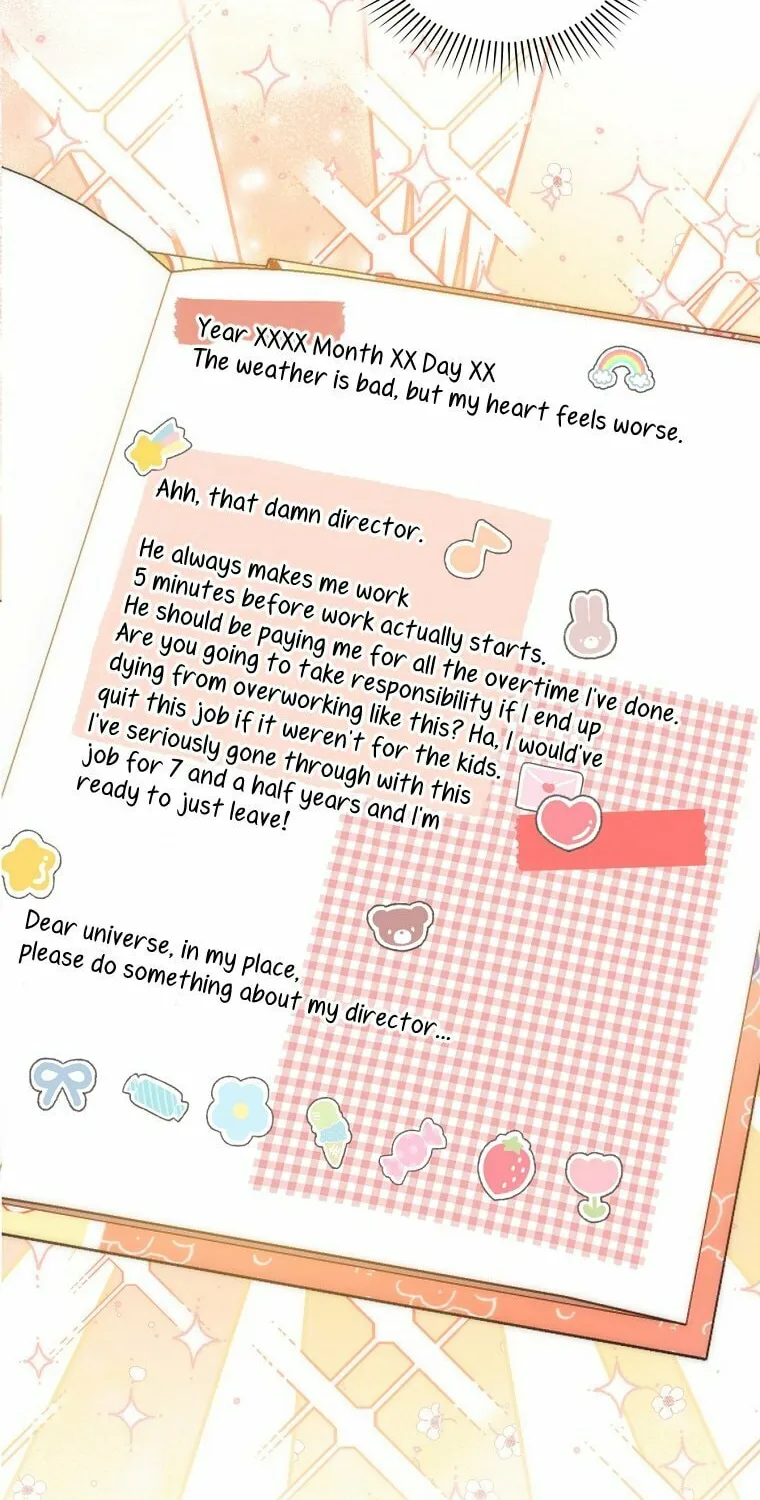 Year XXXX Month XX Day XX
The weather is bad, but my heart feels worse.
Ahh, that damn director.
He always makes me work
5 minutes before work actually starts.
He should be paying me for all the overtime I've done.
Are you going to take responsibility if I end up
dying from overworking like this? Ha, I would've
quit this job if it weren't for the kids.
I've seriously gone through with this
job for 7 and a half years and I'm
ready to just leave!
Dear universe, in my place,
please do something about my director...